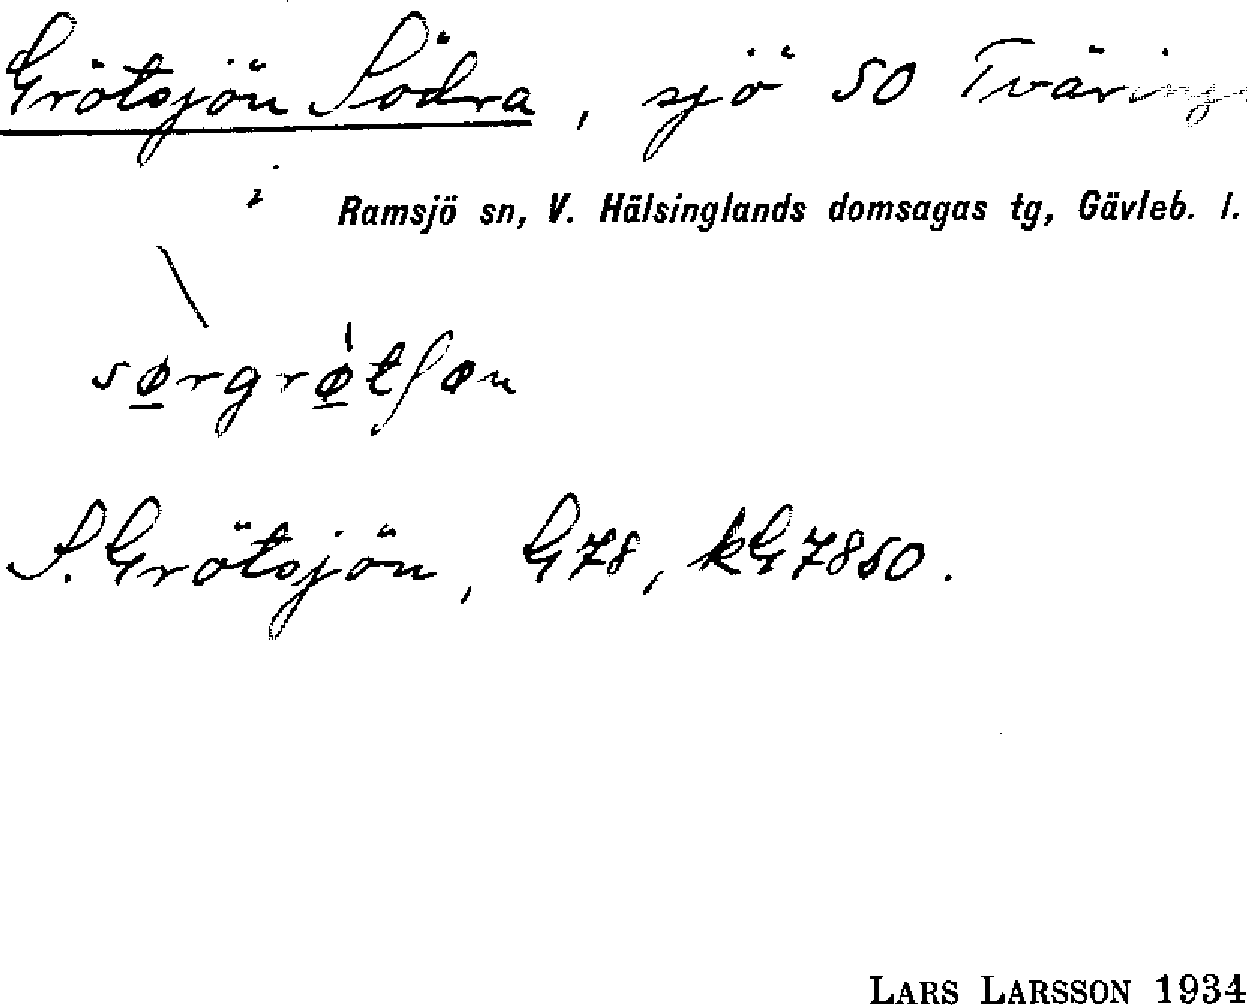 Grötsjön Södra, sjö SO Tväring
i Ramsjö sn, V. Hälsinglands domsagas tg, Gävleb. l.
sø̲rgrø̲̀tʃøn
S. Grötsjön, G78, kG7860.
LARS LARSSON 1934